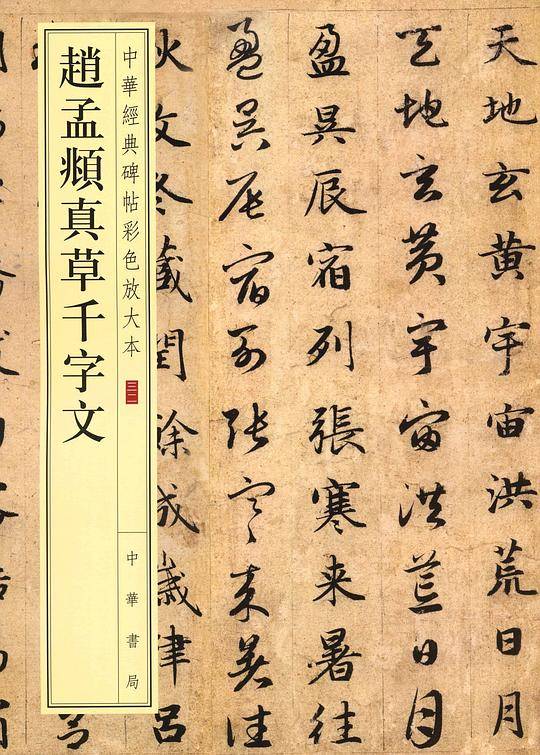 趙孟頫真草千字文
中華經典碑帖彩色放大本
三二
中華書局
天地玄黄宇宙洪荒日月
天地玄黄宇宙洪荒日月
盈昃辰宿列張寒来暑往
盈昃辰宿列张寒来暑往
秋收冬藏閏餘成歲律呂